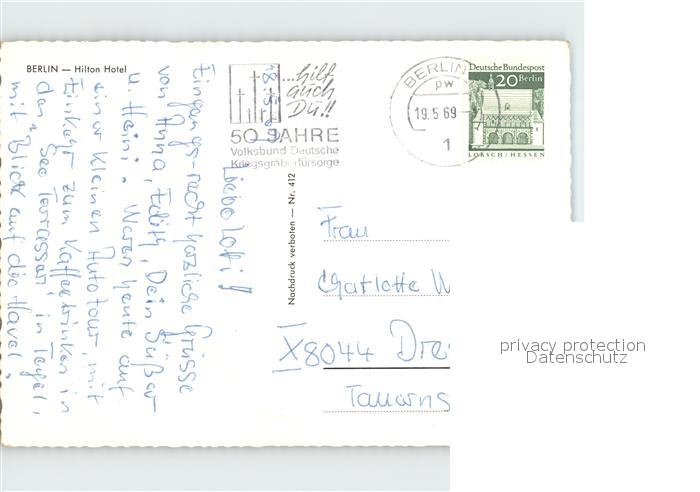 BERLIN — Hilton Hotel
...hilf
auch
Du!!
50 JAHRE
Volksbund Deutsche
Kriegsgräberfürsorge
BERLIN
pw
19.5.69
1
Deutsche Bundespost
20 Berlin
LORSCH/HESSEN
18.5.69
Liebe Loti!
herzliche Grüsse
von Anna, Edith, Dein Süßer
u. Heini. Waren heute auf
einer kleinen Autotour, mit
Einkehr zum Kaffeetrinken in
den "See Terrassen" in Tegel,
mit Blick auf die Havel.
Nachdruck verboten — Nr. 412
Frau
Charlotte W
X8044 Dre
Tauerns
privacy protection
Datenschutz